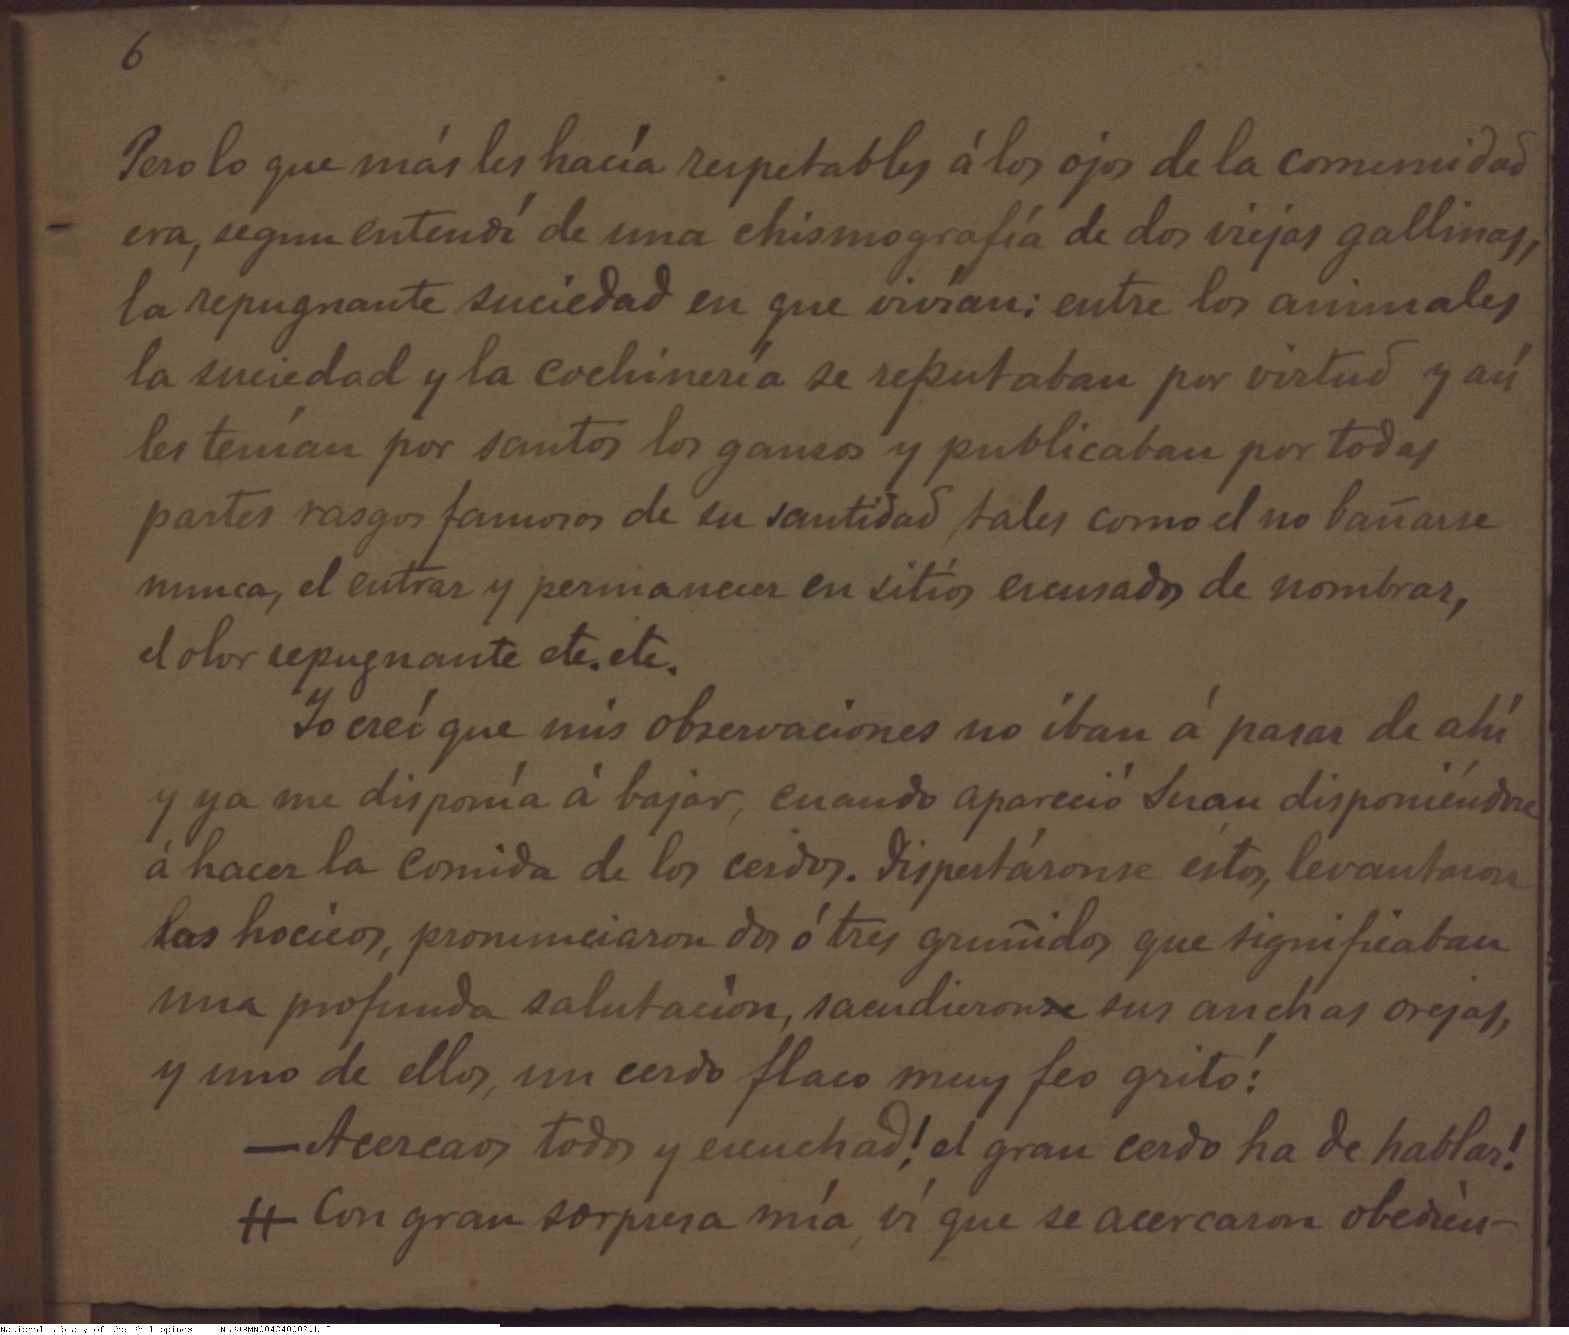 6
Pero lo que más les hacía respetables á los ojos de la comunidad
era, segun entendí de una chismografía de dos viejas gallinas,
la repugnante suciedad en que vivían; entre los animales
la suciedad y la cochinería se reputaban por virtud y aú
les tenían por santos los gansos y publicaban por todas
partes rasgos famosos de su santidad, tales como el no bañarse
nunca, el entrar y permanecer en sitios escusados de nombrar,
el olor repugnante etc. etc.
Yo creí que mis observaciones no iban á pasar de ahí
y ya me disponía á bajar, cuando apareció Juan disponiéndose
á hacer la comida de los cerdos. Dispertáronse éstos, levantaron
los hocicos, pronunciaron dos ó tres gruñidos que significaban
una profunda salutacion, sacudieron sus anchas orejas,
y uno de ellos, un cerdo flaco muy feo gritó:
— Acercaos todos y escuchad! el gran cerdo ha de hablar!
Con gran sorpresa mía, ví que se acercaron obedien-
National Library of the Philippines